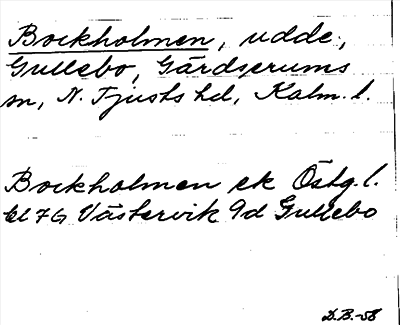 Bockholmen, udde,
Gullebo, Gärdserums
sn, N. Tjusts hd, Kalm. l.
Bockholmen ek Östg. l.
bl 76 Västervik 9d Gullebo
D.B.-58